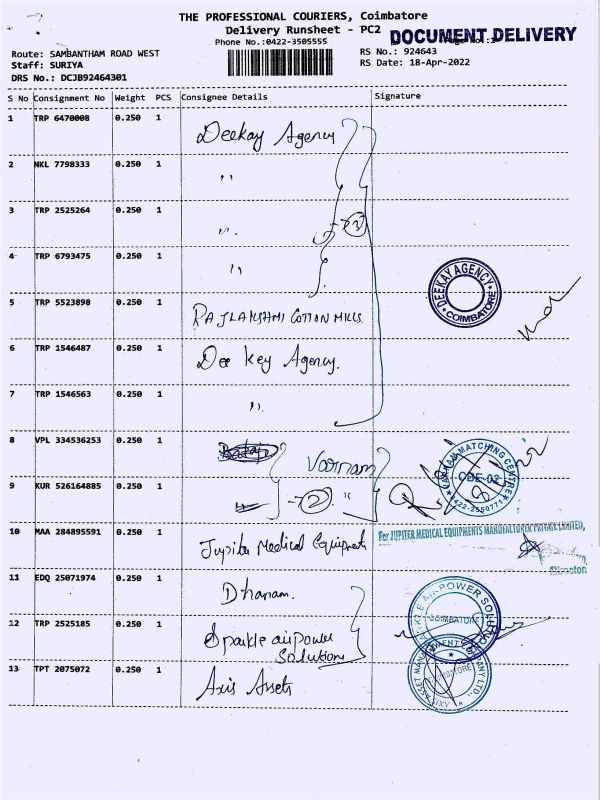 THE PROFESSIONAL COURIERS, Coimbatore
Delivery Runsheet - PC2
DOCUMENT DELIVERY
Phone No.:0422-3505555
Route: SAMBANTHAM ROAD WEST
RS No.: 924643
Staff: SURIYA
RS Date: 18-Apr-2022
DRS No.: DCJB92464301
S No Consignment No Weight PCS Consignee Details Signature
1 TRP 6470008 0.250 1 Deekay Agency
2 NKL 7798333 0.250 1 "
3 TRP 2525264 0.250 1 " 7
4 TRP 6793475 0.250 1 "
DEEKAY AGENCY
COIMBATORE
5 TRP 5523898 0.250 1 RAJLAKSHMI COTTON MILLS.
6 TRP 1546487 0.250 1 Dee Key Agency.
7 TRP 1546563 0.250 1 "
8 VPL 334536253 0.250 1 Voornam
MATCHING CENTRE
CBE-02
0422-2550771
9 KUR 526164885 0.250 1 2 "
10 MAA 284895591 0.250 1 Jupiter Medical Equipments
For JUPITER MEDICAL EQUIPMENTS MANUFACTURER PRIVATE LIMITED,
Director
11 EDQ 25071974 0.250 1 Dhanam.
12 TRP 2525185 0.250 1 Sparkle airpower
Solution
AIRPOWER SOLUTION
COIMBATORE
13 TPT 2075072 0.250 1 Axis Assets
AXIS ASSET MANAGEMENT COMPANY LTD.,
COIMBATORE